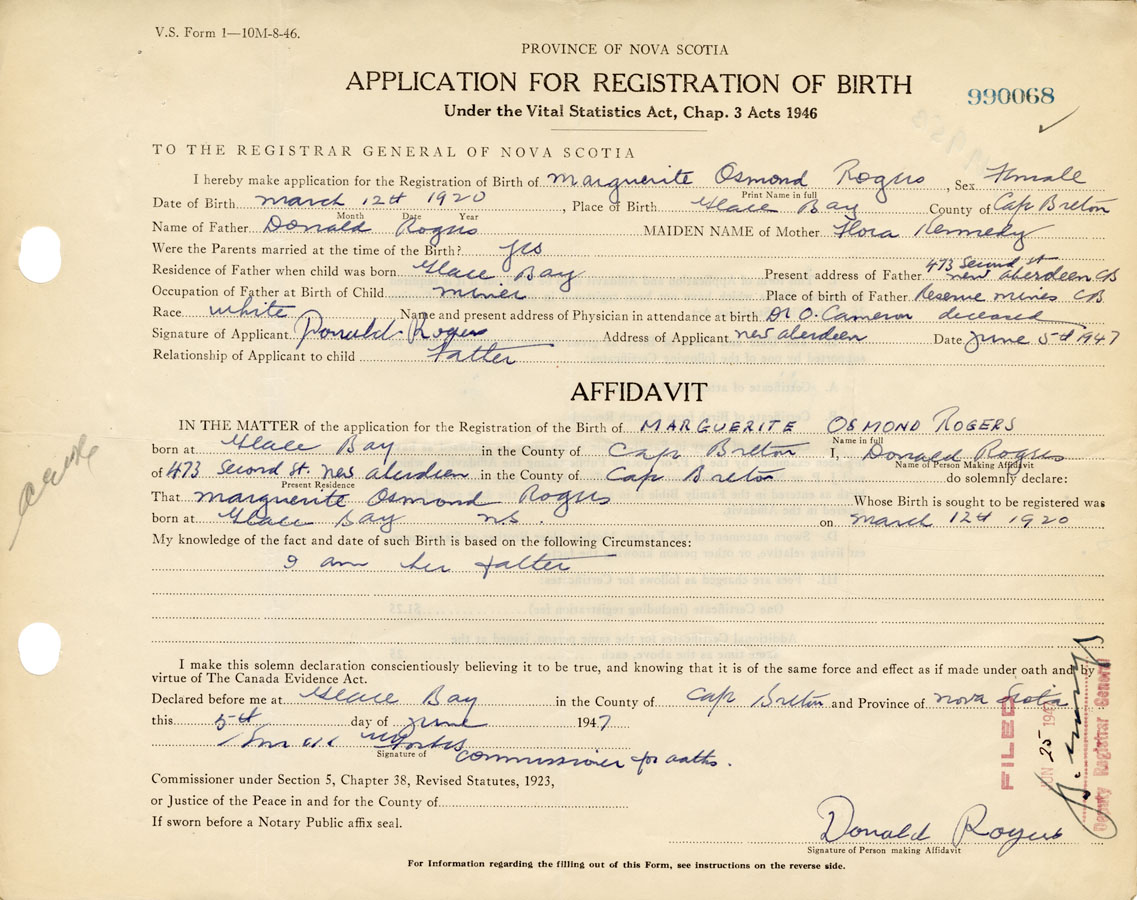 V.S. Form 1—10M-8-46.
PROVINCE OF NOVA SCOTIA
APPLICATION FOR REGISTRATION OF BIRTH
990068
Under the Vital Statistics Act, Chap. 3 Acts 1946
TO THE REGISTRAR GENERAL OF NOVA SCOTIA
I hereby make application for the Registration of Birth of Marguerite Osmond Rogers, Sex Female
Print Name in full
Date of Birth March 12th 1920, Place of Birth Glace Bay County of Cap Breton
Month Date Year
Name of Father Donald Rogers MAIDEN NAME of Mother Flora Kennedy
Were the Parents married at the time of the Birth? yes
Residence of Father when child was born Glace Bay Present address of Father 473 Second St New Aberdeen CB
Occupation of Father at Birth of Child miner Place of birth of Father Reserve Mines CB
Race white Name and present address of Physician in attendance at birth Dr O. Cameron deceased
Signature of Applicant Donald Rogers Address of Applicant New Aberdeen Date June 5th 1947
Relationship of Applicant to child Father
AFFIDAVIT
IN THE MATTER of the application for the Registration of the Birth of MARGUERITE OSMOND ROGERS
Name in full
born at Glace Bay in the County of Cap Breton I, Donald Rogers
Name of Person Making Affidavit
of 473 Second St. New Aberdeen in the County of Cap Breton do solemnly declare:
Present Residence
That Marguerite Osmond Rogers Whose Birth is sought to be registered was
born at Glace Bay N.S. on March 12th 1920
My knowledge of the fact and date of such Birth is based on the following Circumstances:
I am her father
I make this solemn declaration conscientiously believing it to be true, and knowing that it is of the same force and effect as if made under oath and by
virtue of The Canada Evidence Act.
Declared before me at Glace Bay in the County of Cap Breton and Province of Nova Scotia
this 5th day of June 1947
Signature of Commissioner for oaths.
Commissioner under Section 5, Chapter 38, Revised Statutes, 1923,
or Justice of the Peace in and for the County of
If sworn before a Notary Public affix seal.
Donald Rogers
Signature of Person making Affidavit
For Information regarding the filling out of this Form, see instructions on the reverse side.
FILED
JUN 25 194
Deputy Registrar General